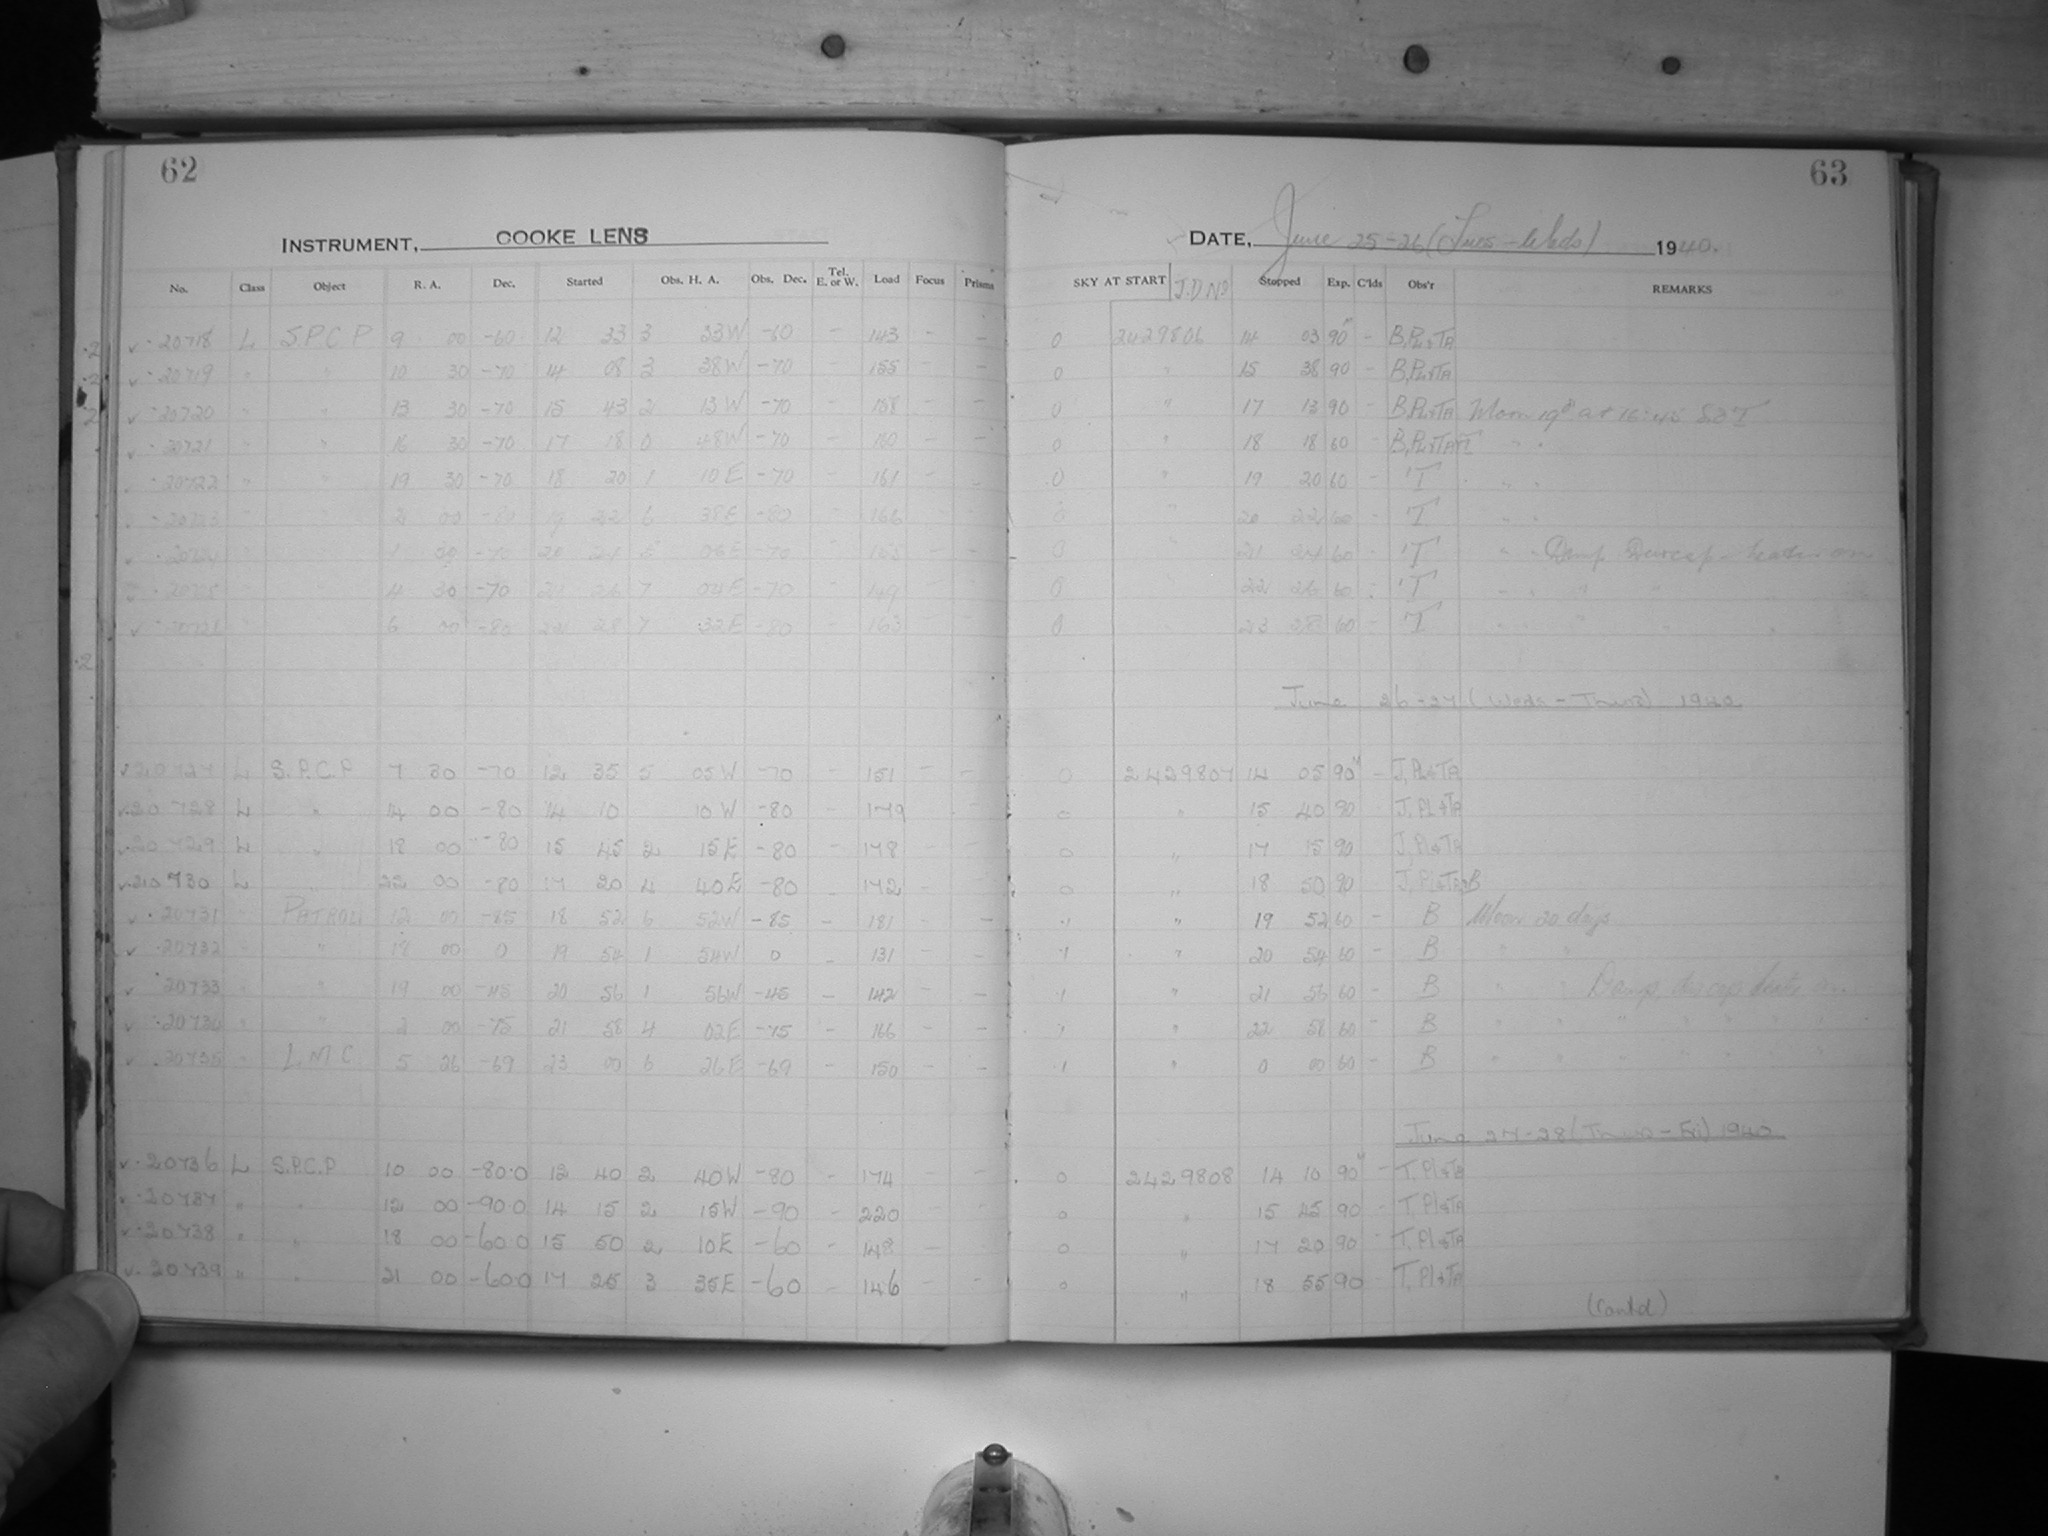 62
63
INSTRUMENT, COOKE LENS
DATE, June 25-26 (Tues - Weds) 1940.
No. Class Object R. A. Dec. Started Obs. H. A. Obs. Dec. Tel. E. or W. Load Focus Prisms SKY AT START J.D No Stopped Exp. C'lds Obs'r REMARKS
20718 L S.P.C.P 9 00 -60 12 33 3 33W -60 - 143 - - 0 2429806 14 03 90 - B,PL&TA
20719 " " 10 30 -70 14 08 3 38W -70 - 155 - - 0 " 15 38 90 - B,PL&TA
20720 " " 13 30 -70 15 43 2 13W -70 - 158 - - 0 " 17 13 90 - B,PL&TA Moon 19d at 16:45 S.D T
20721 " " 16 30 -70 17 18 0 48W -70 - 160 - - 0 " 18 18 60 - " "
20722 " " 19 30 -70 18 20 1 10E -70 - 161 - - 0 " 19 20 60 - T " "
2 00 -80 19 22 6 38E -80 - 166 - - 0 " 20 22 60 - T " "
1 30 -70 20 24 5 06E -70 - - - 0 " 21 24 60 - T " " Damp Dewcap - heater on
20725 4 30 -70 21 26 7 04E -70 - 149 - - 0 22 26 60 - T " " " "
6 00 -80 22 28 7 32E -80 - 163 - - 0 23 28 60 - T
June 26-27 (Weds - Thurs) 1940
v 20727 L S.P.C.P 7 30 -70 12 35 5 05W -70 - 151 - - 0 2429807 14 05 90 - J, PL&TA
v 20728 L " 14 00 -80 14 10 10W -80 - 179 - - 0 " 15 40 90 J. PL&TA
v 20729 L " 18 00 -80 15 45 2 15E -80 - 178 - - 0 " 17 15 90 J. PL&TA
v 20730 L " 22 00 -80 17 20 4 40E -80 - 172 - - 0 " 18 50 90 J, PL&TA&B
v 20731 " PATROL 12 00 -85 18 52 6 52W -85 - 181 - - .1 " 19 52 60 - B Moon 20 days
v 20732 " " 18 00 0 19 54 1 54W 0 - 131 - - .1 " 20 54 60 - B " "
v 20733 " " 19 00 -45 20 56 1 56W -45 - 142 - - .1 " 21 56 60 - B " " Damp, dewcap heater on.
v 20734 " " 2 00 -75 21 58 4 02E -75 - 166 - - .1 " 22 58 60 - B " " " " " "
v 20735 " LMC 5 26 -69 23 00 6 26E -69 - 150 - - .1 " 0 00 60 - B " " " " " "
June 27-28 (Thurs - Fri) 1940
v 20736 L S.P.C.P 10 00 -80.0 12 40 2 40W -80 - 174 - - 0 2429808 14 10 90 - T. PL&TA
v 20737 " " 12 00 -90.0 14 15 2 15W -90 - 220 - - 0 " 15 45 90 - T. PL&TA
v 20738 " " 18 00 -60.0 15 50 2 10E -60 - 148 - - 0 " 17 20 90 - T. PL&TA
v 20739 " " 21 00 -60.0 17 25 3 35E -60 - 146 - - 0 " 18 55 90 - T. PL&TA
(Contd)